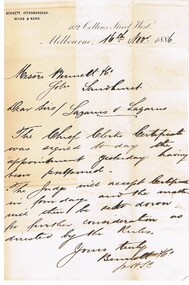 BENNETT, ATTENBOROUGH,
WILKS & NUNN.
102 Collins Street West,
Melbourne, 16th Nov. 1886
Messrs Burnett & Co
Sandhurst
Dear Sirs / Lazarus v Lazarus
The Chief Clerks Certificate
was signed to day the
appointment yesterday having
been postponed.
The Judge will accept Certificate
in four days and the matter
will then be set down
for further consideration as
directed by the Rules.
Yours truly